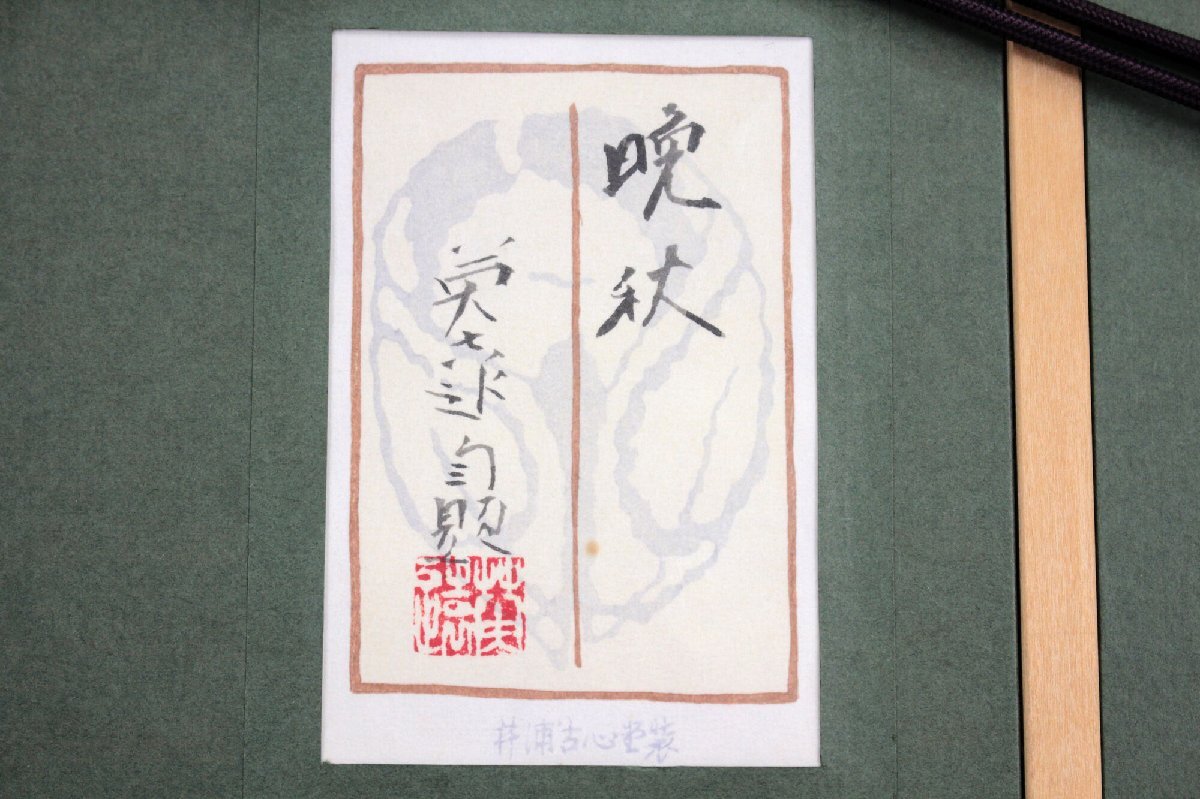 晩秋
英遠自題
井浦古心堂装